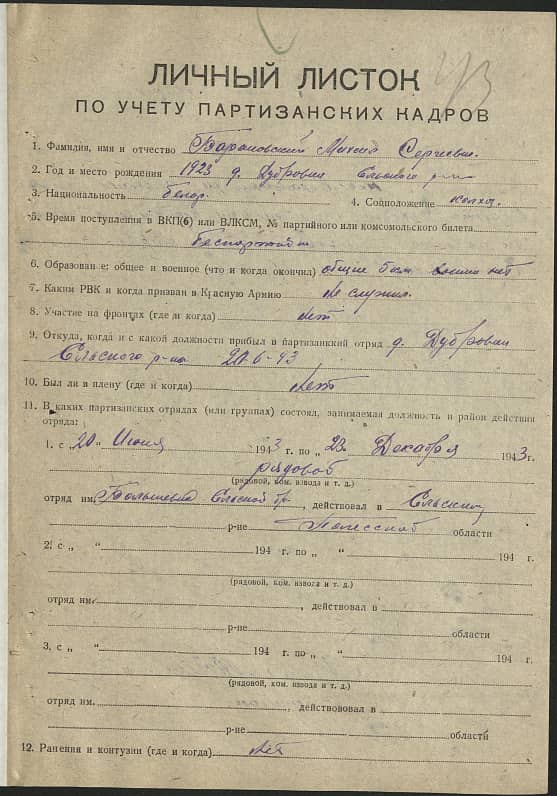 43
ЛИЧНЫЙ ЛИСТОК
ПО УЧЕТУ ПАРТИЗАНСКИХ КАДРОВ
1. Фамилия, имя и отчество Барановский Михаил Сергеевич.
2. Год и место рождения 1923 д. Дубровки Ельского р-на
3. Национальность белор. 4. Соцположение колхоз.
5. Время поступления в ВКП(б) или ВЛКСМ, № партийного или комсомольского билета
Беспартийный
6. Образование: общее и военное (что и когда окончил) общее 6кл. воен. нет
7. Каким РВК и когда призван в Красную Армию Не служил.
8. Участие на фронтах (где и когда) Нет
9. Откуда, когда и с какой должности прибыл в партизанский отряд д. Дубровки
Ельского р-на 20.6-43
10. Был ли в плену (где и когда) Нет
11. В каких партизанских отрядах (или группах) состоял, занимаемая должность и район действия
отряда:
1. с „20„ Июня 1943 г. по „23„ Декабря 1943 г.
рядовой
(рядовой, ком. взвода и т. д.)
отряд им. Большевик Ельской бр., действовал в Ельском
р-не Полесской области
2. с „ „ 194 г. по „ „ 194 г.
(рядовой, ком. взвода и т. д.)
отряд им. , действовал в
р-не области
3. с „ „ 194 г. по „ „ 194 г.
(рядовой, ком. взвода и т. д.)
отряд им. , действововал в
р-не области
12. Ранения и контузии (где и когда) Нет